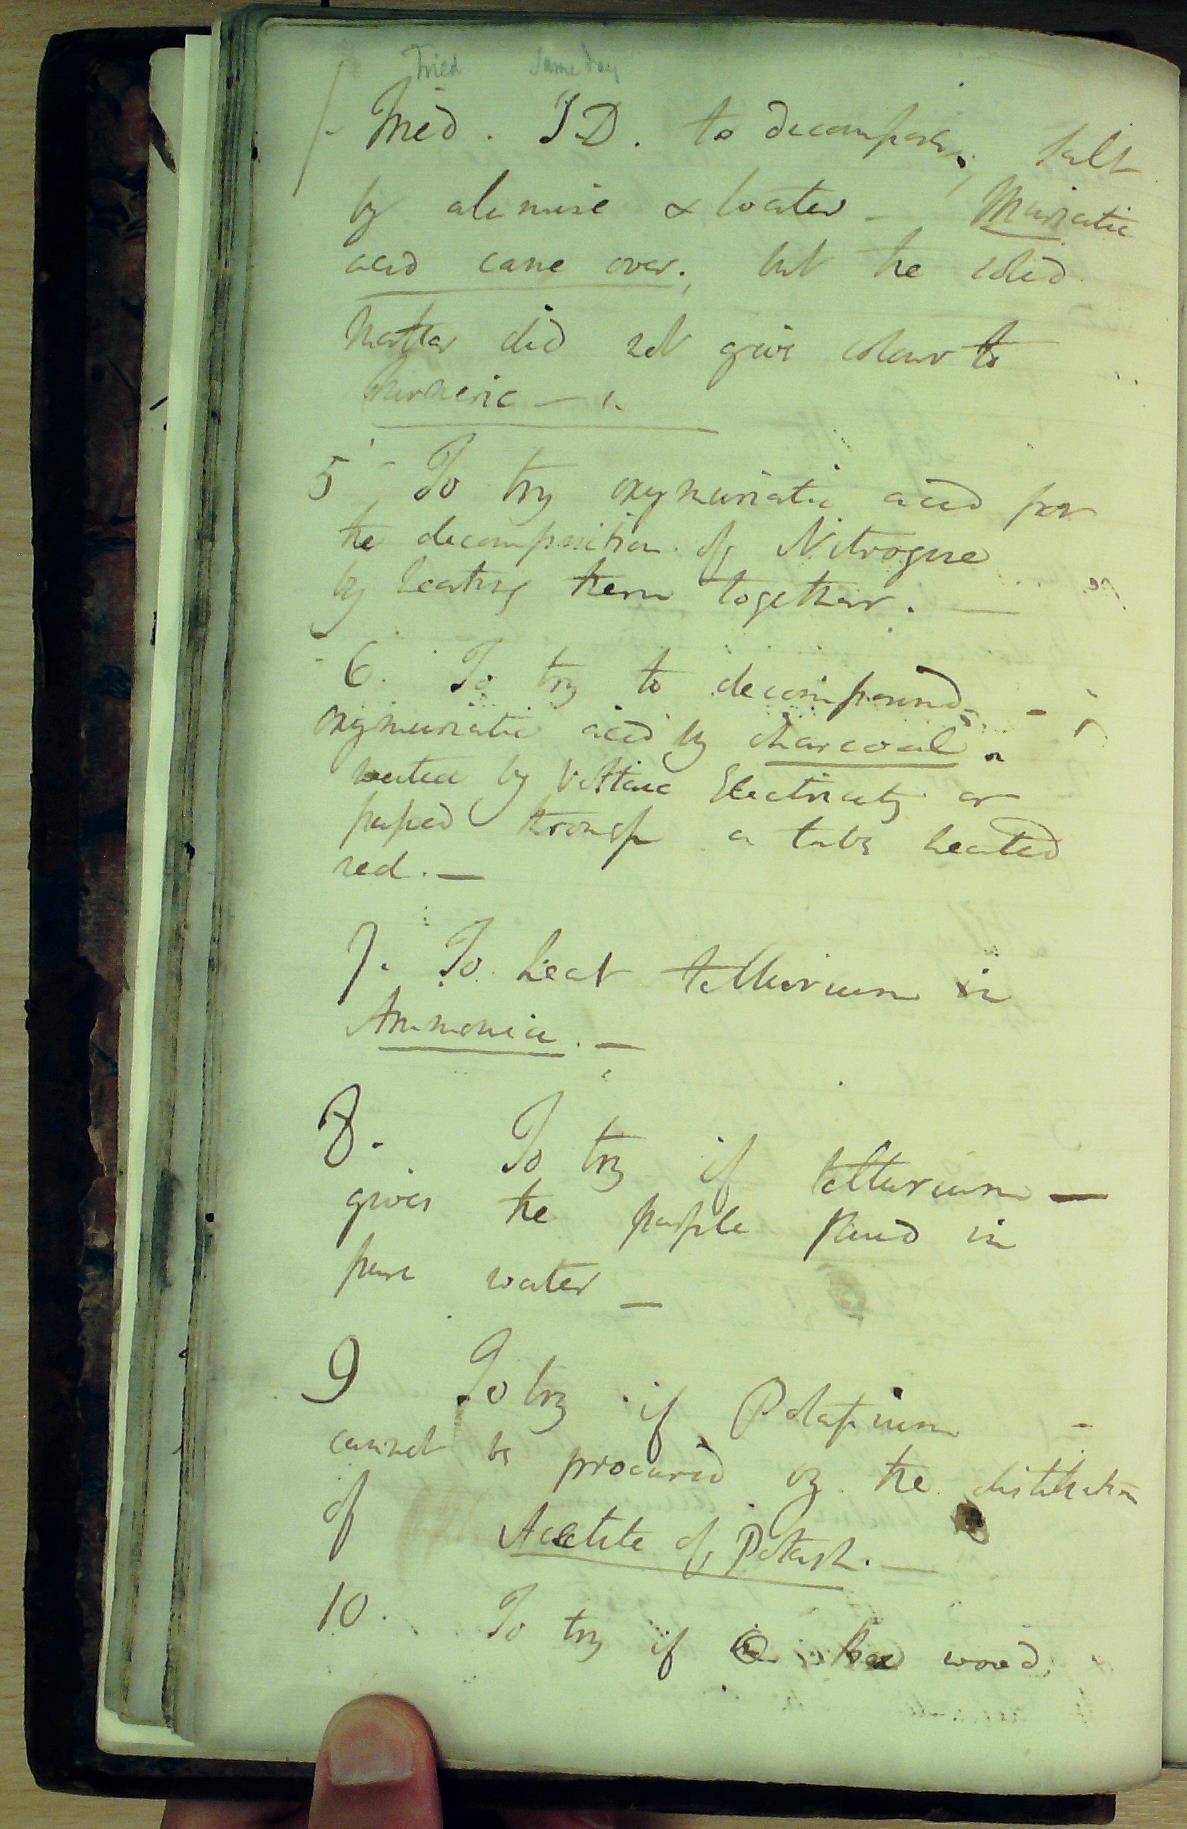 Tried Same day
Tried. SD. to decompose salt
by alumine & water - Muriatic
acid came over, but the solid
matter did not give colour to
turmeric -
5 - To try oxymuriatic acid for
the decomposition of Nitrogene
by heating them together. -
6. To try to decompound -
oxymuriatic acid by charcoal
heated by Voltaic Electricity or
passed through a tube heated
red. -
7. To heat tellurium in
Ammonia. -
8. To try if tellurium -
gives the purple fluid in
pure water -
9 To try if Potassium -
cannot be procured by the distillation
of Acetite of Potash. -
10. To try if wood